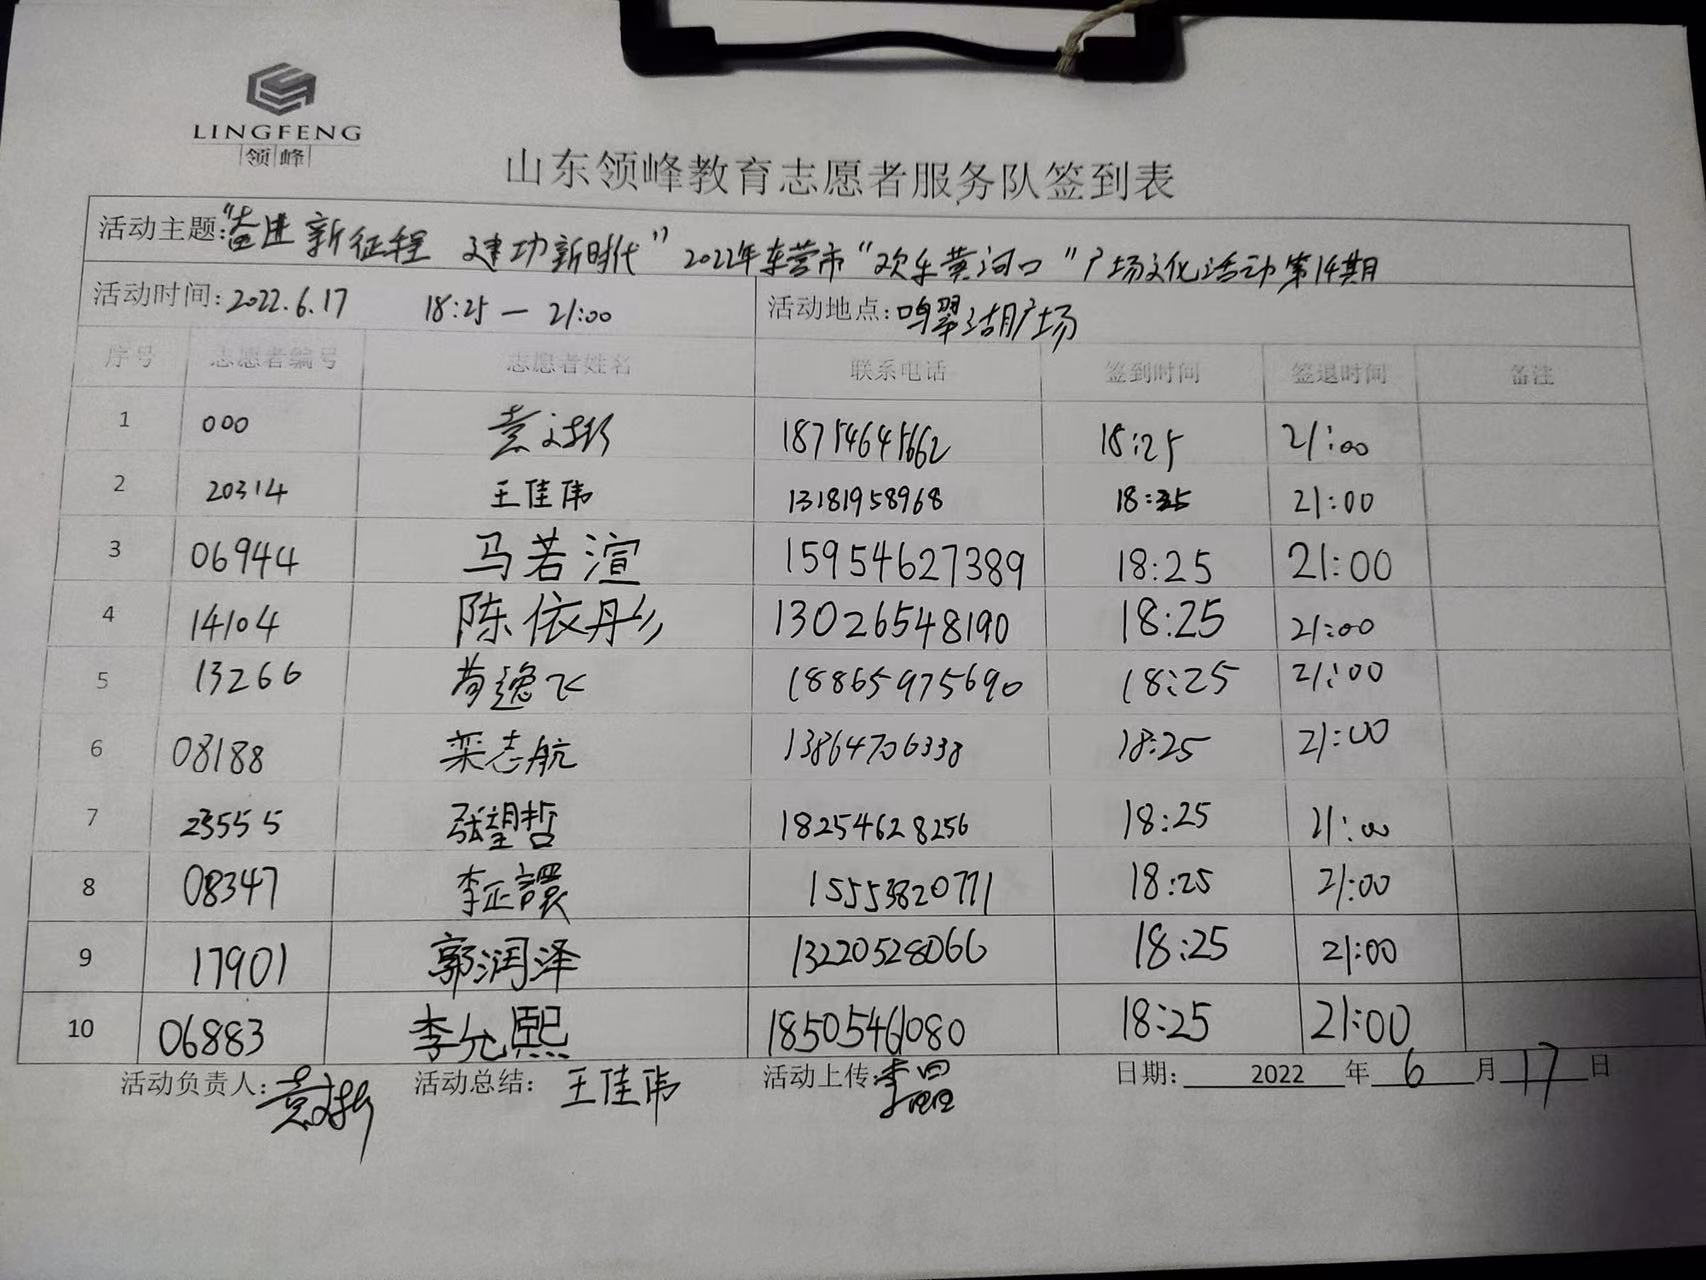 LINGFENG
领峰
山东领峰教育志愿者服务队签到表
活动主题:"奋进新征程 建功新时代" 2022年东营市"欢乐黄河口"广场文化活动第14期
活动时间:2022.6.17 18:25 — 21:00 活动地点:鸣翠湖广场
序号 志愿者编号 志愿者姓名 联系电话 签到时间 签退时间 备注
1 000 18754645662 18:25 21:00
2 20314 王佳伟 13181958968 18:25 21:00
3 06944 马若渲 15954627389 18:25 21:00
4 14104 陈依彤 13026548190 18:25 21:00
5 13266 苟逸飞 18865975690 18:25 21:00
6 08188 栾志航 13864706338 18:25 21:00
7 23555 张望哲 18254628256 18:25 21:00
8 08347 李正譞 15553820771 18:25 21:00
9 17901 郭润泽 13220528066 18:25 21:00
10 06883 李允熙 18505461080 18:25 21:00
活动负责人: 活动总结: 王佳伟 活动上传: 日期: 2022 年 6 月 17 日